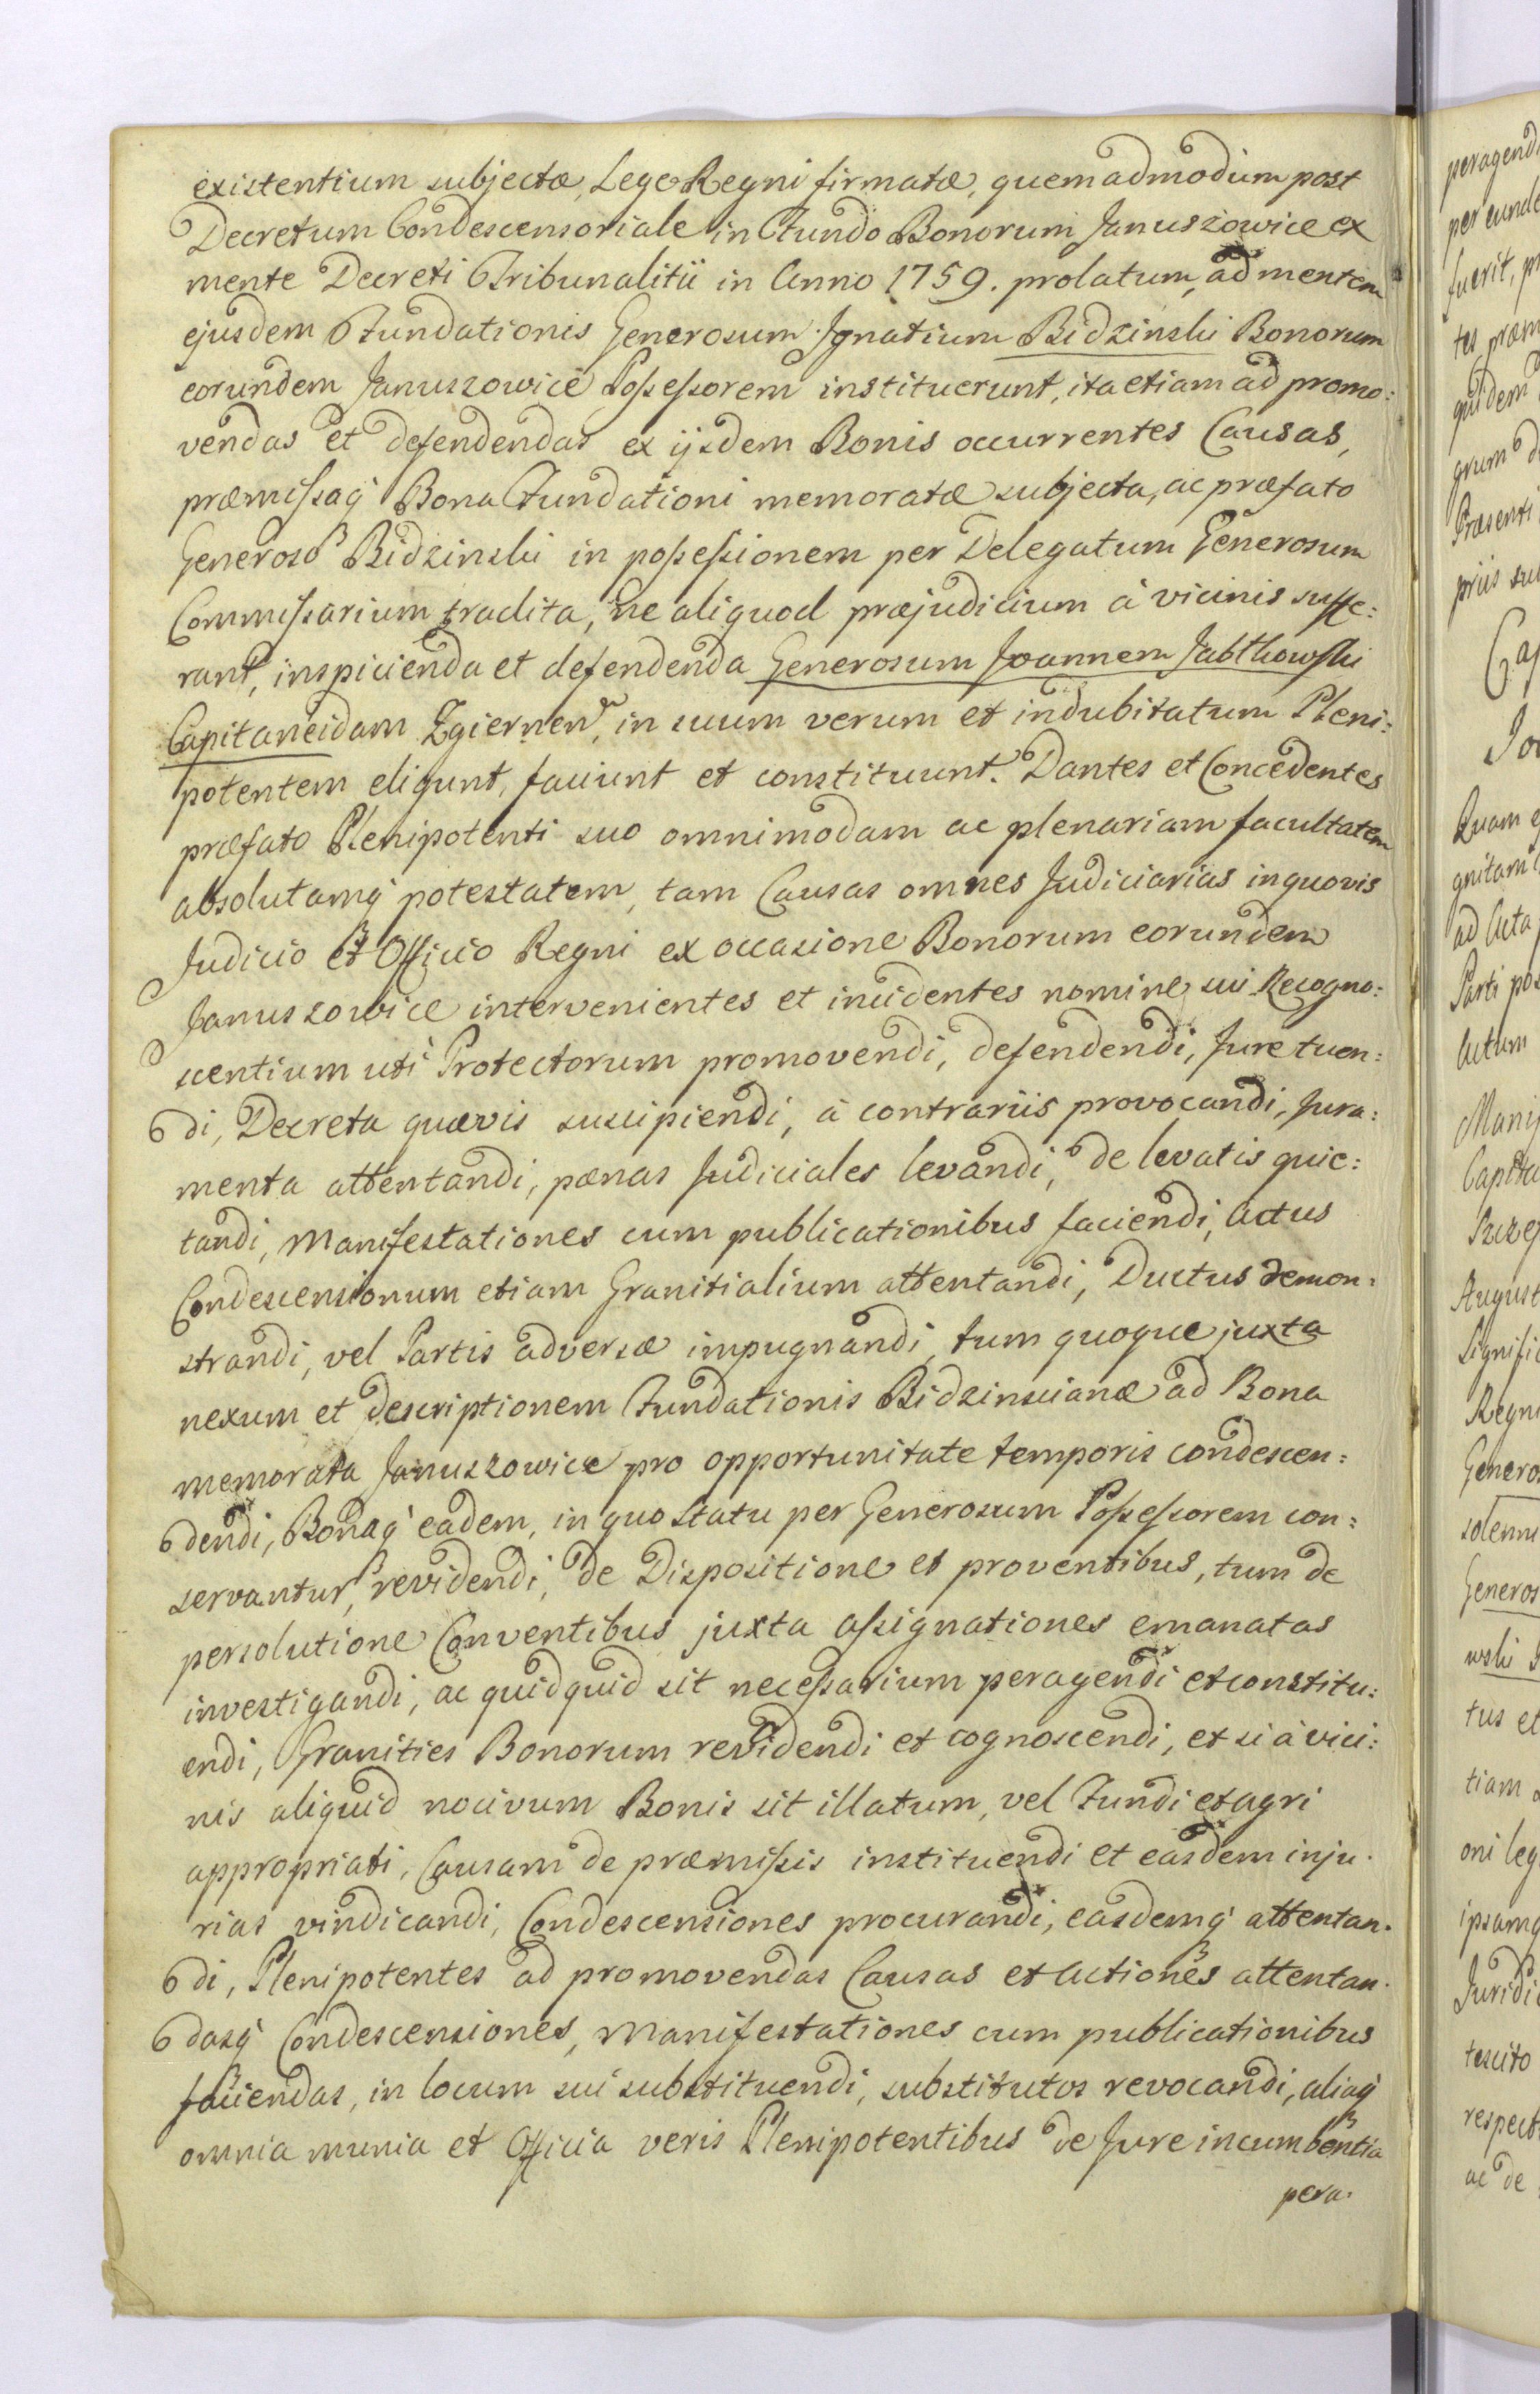 existentium subjectæ, Lege Regni firmatæ, quemadmodum post
Decretum Condescensoriale in Fundo Bonorum Januszowice ex
mente Decreti Tribunalitii in Anno 1759. prolatum, ad mentem
ejusdem Fundationis Generosum Ignatium Bidzinski Bonorum
eorundem Januszowice Possessorem instituerunt, ita etiam ad promo:
vendas et defendendas ex ijsdem Bonis occurrentes Causas,
præmissaq́ Bona Fundationi memoratæ subjecta, ac præfato
Generoso Bidzinski in possessionem per Delegatum Generosum
Commissarium tradita, ne aliquod præjudicium à vicinis suffe:
rant, inspicienda et defendenda Generosum Joannem Jabłkowski
Capitaneidam Zgiernen̄, in suum verum et indubitatum Pleni:
potentem eligunt, faciunt et constituunt. Dantes et Concedentes
præfato Plenipotenti suo omnimodam ac plenariam facultatem
absolutamq́ potestatem, tam Causas omnes Judiciarias in quovis
Judicio et Officio Regni ex occasione Bonorum eorundem
Januszowice intervenientes et incidentes nomine sui Recogno:
scentium uti Protectorum promovendi, defendendi, Jure tuen:
di, Decreta quævis suscipiendi, à contrariis provocandi, Jura:
menta attentandi, pænas Judiciales levandi, de levatis quie:
tandi, Manifestationes cum publicationibus faciendi, Actus
Condescensionum etiam Granitialium attentandi, Ductus demon:
strandi, vel Partis adversæ impugnandi, tum quoque juxta
nexum et descriptionem Fundationis Bidzinscianæ ad Bona
memorata Januszowice pro opportunitate temporis condescen:
dendi, Bonaq́ eadem, in quo statu per Generosum Possessorem con:
servantur, revidendi, de Dispositione et proventibus, tum de
persolutione Conventibus juxta assignationes emanatas
investigandi, ac quidquid sit necessarium peragendi et constitu:
endi, Granities Bonorum revidendi et cognoscendi, et si à vici:
nis aliquid nocivum Bonis sit illatum, vel Fundi et agri
appropriati, Causam de præmissis instituendi et easdem inju:
rias vindicandi, Condescensiones procurandi, easdemq́ attentan:
di, Plenipotentes ad promovendas Causas et Actiones attentan:
dasq́ Condescensiones, Manifestationes cum publicationibus
faciendas, in locum sui substituendi, substitutos revocandi, aliaq́
omnia munia et Officia veris Plenipotentibus de Jure incumbentia
pera: